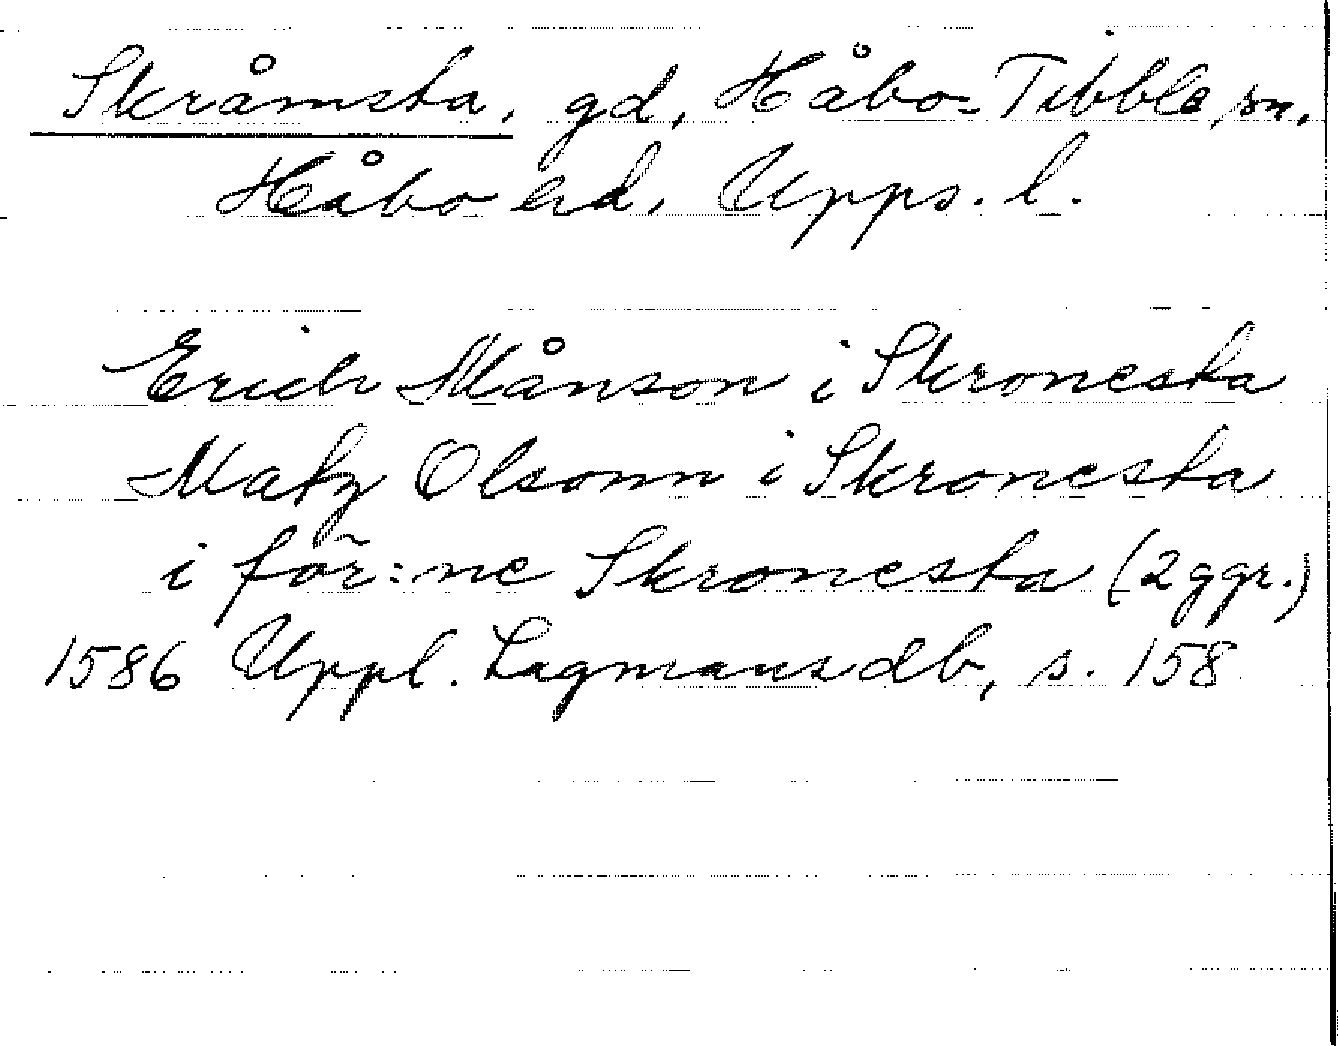 Skråmsta, gd, Håbo-Tibble sn,
Håbo hd, Upps. l.
Erich Månson i Skronesta
Matz Olsonn i Skronesta
i för:ne Skronesta (2 ggr.)
1586 Uppl. Lagmansdb, s. 158